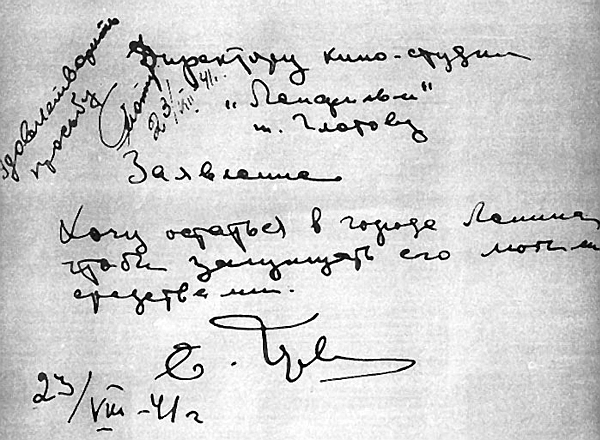 Удовлетворить
просьбу
23/VIII 41.
Директору кино-студии
„Ленфильм"
т. Глотову
Заявление
Хочу остаться в городе Ленина,
чтобы защищать его моими
средствами.
23/VIII-41 г